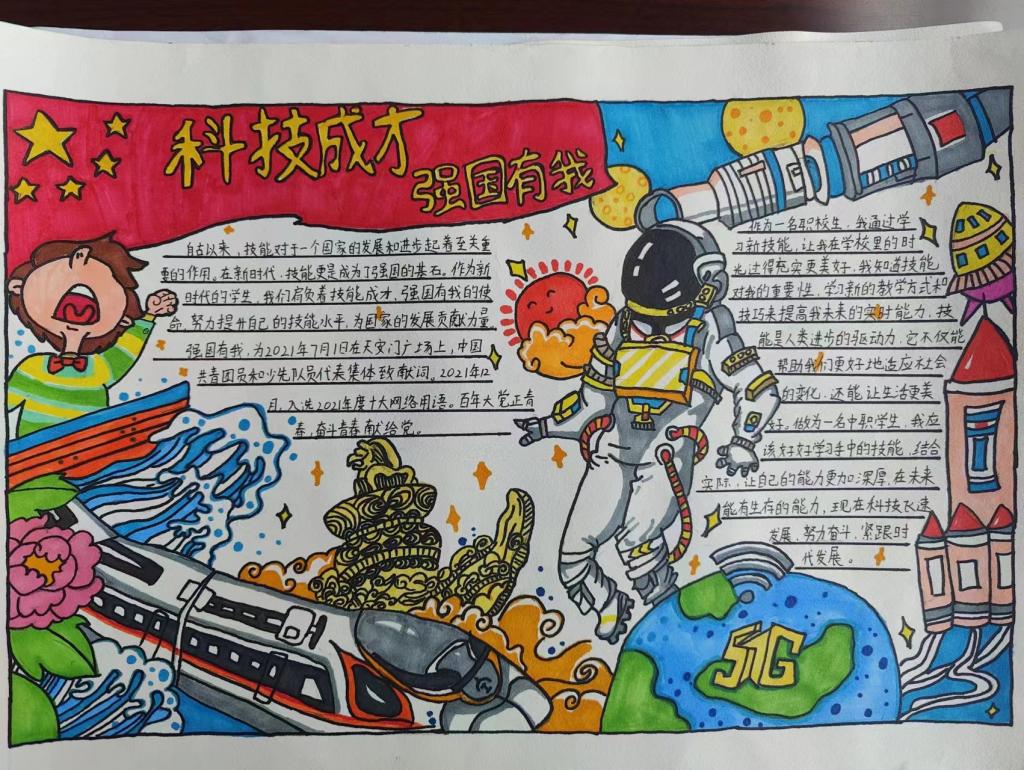 科技成才
强国有我
自古以来，技能对于一个国家的发展和进步起着至关重
重的作用。在新时代，技能更是成为了强国的基石。作为新
时代的学生，我们肩负着技能成才，强国有我的使
命，努力提升自己的技能水平，为国家的发展贡献力量
强国有我，为2021年7月1日在天安门广场上，中国
共青团员和少先队员代表集体致献词。2021年12
月，入选2021年度十大网络用语。百年大党正青
春，奋斗青春献给党。
作为一名职校生，我通过学
习新技能，让我在学校里的时
光过得充实更美好，我知道技能
对我的重要性，学习新的教学方式和
技巧来提高我未来的实时能力，技
能是人类进步的驱动力，它不仅能
帮助我们更好地适应社会
的变化，还能让生活更美
好。做为一名中职学生，我应
该好好学习手中的技能，结合
实际，让自己的能力更加深厚，在未来
能有生存的能力，现在科技飞速
发展，努力奋斗，紧跟时
代发展。
5G